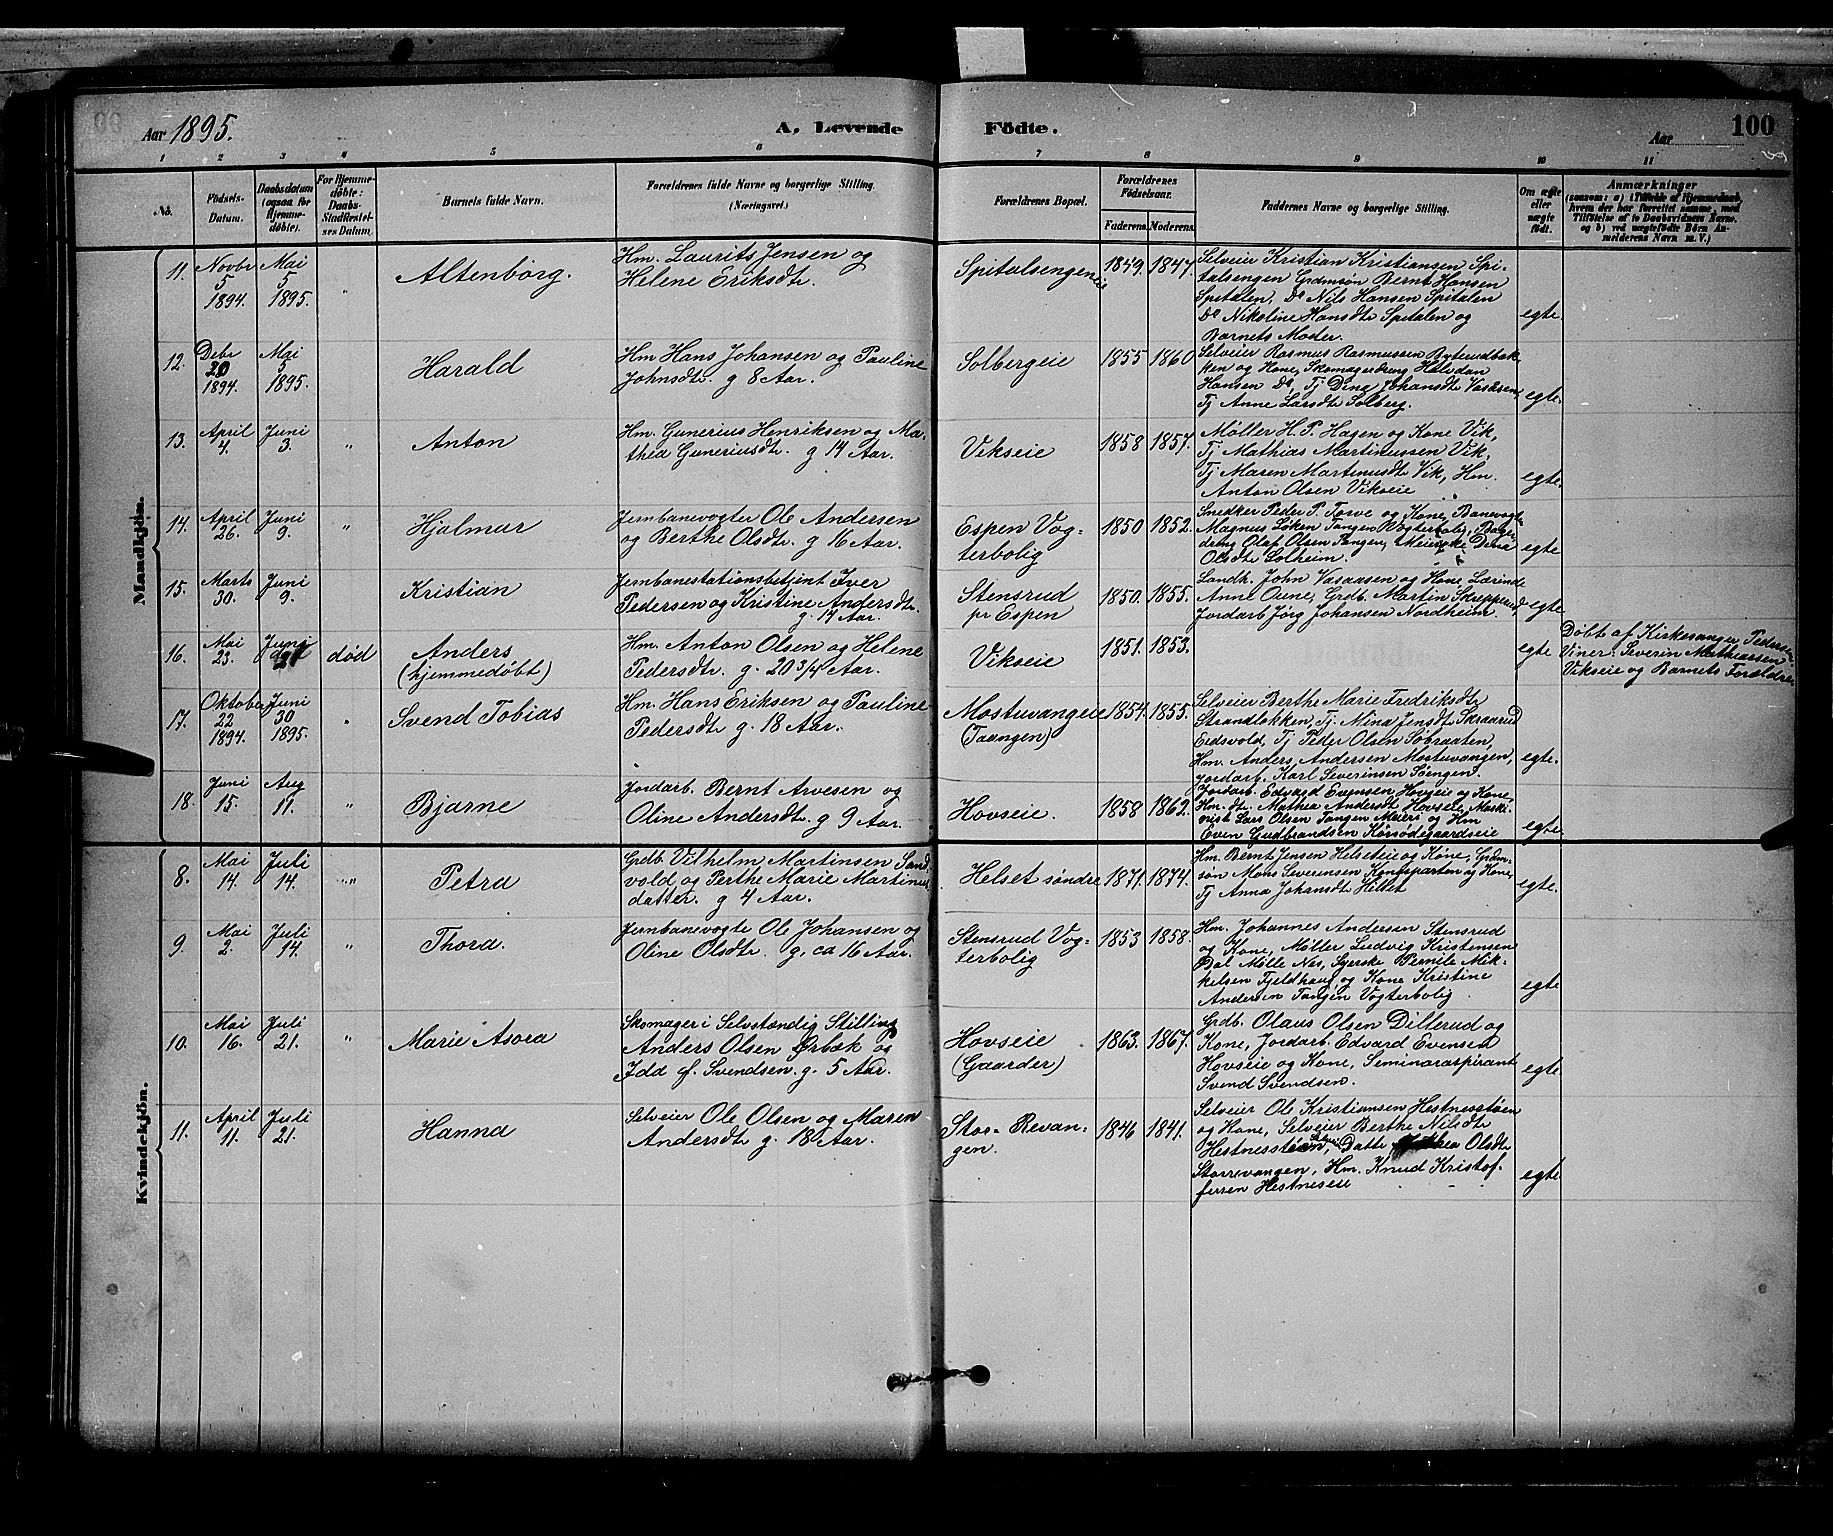 Aar 1895.
A. Levende
Födte.
Aar
100
1 2 3 4 5 6 7 8 9 10 11
No.
Födsels-Datum.
Daabsdatum (ogsaa for Hjemme-döbte).
For Hjemme-döbte: Daabs-Stadfæstel-ses Datum.
Barnets fulde Navn.
Forældrenes fulde Navne og borgerlige Stilling. (Næringsvei.)
Forældrenes Bopæl.
Forældrenes Födselsaar.
Faderens Moderens
Faddernes Navne og borgerlige Stilling.
Om ægte eller uægte födt.
Anmærkninger
(saasom: a) i Tilfælde af Hjemmedaab,
hvem der har forrettet samme, med
Tilföielse af to Daabsvidners Navne,
og b) ved uægtefödte Börn An-
melderens Navn m. V.)
Mandkjön.
11. Novbr 5 1894. Mai 5 1895. " Altenborg.
Hm. Laurits Jensen og
Helene Eriksdtr.
Spitalsengeneie 1849. 1847.
Selveier Kristian Kristiansen Spi-
talsengen Grdmsön Bernt Hansen
Spitalen, Do Nils Hansen Spitalen
Do Nikoline Hansdtr Spitalen og
Barnets Moder.
egte.
12. Debr 20 1894. Mai 5 1895. Harald
Hm Hans Johansen og Pauline
Johnsdtr. g 8 Aar.
Solbergeie 1855 1860
Selveier Rasmus Rasmussen
og Kone, Skomagerdreng Halvdan
Hansen Do, Tj Dina Johansdtr Vasaasen,
Tj Anne Larsdtr Solberg.
egte.
13. April 4. Juni 3. " Anton
Hm. Gunerius Henriksen og Ma-
thea Guneriusdtr. g 14 Aar.
Vikseie 1858 1857.
Møller H. P. Hagen og Kone Vik,
Tj Mathias Martinussen Vik,
Tj Maren Martinusdtr Vik, Hm.
Anton Olsen Vikseie
egte.
14. April 26. Juni 9. " Hjalmar
Jernbanevogter Ole Andersen
og Berthe Olsdtr. g 16 Aar.
Espen Vog-
terbolig
1850 1852.
Snedker Peder P. Torve og Kone, Banevogter
Magnus Løken Tangen Vogterbolig, Bager
dreng Olaf Olsen Tangen, Dina
Olsdtr Solheim.
egte
15. Marts 30. Juni 9. Kristian
Jernbanestationsbetjent Iver
Pedersen og Kristine Andersdtr.
g. 14 Aar.
Stensrud
pr Espen
1850. 1855.
Landh. John Vasaasen og Kone, Lærinde
Anne Oune, Grdb. Martin Skrepperud,
Jordarb Jørg Johansen Nordheim.
egte
16. Mai 23. Juni død Anders
(hjemmedøbt)
Hm. Anton Olsen og Helene
Pedersdtr. g. 20 3/4 Aar.
Vikseie 1851. 1853.
egte
Døbt af Kirkesanger Pedersen
Viner: Severin Mathiassen
Vikseie og Barnets Forældre.
17. Oktober 22 1894. Juni 30 1895. " Svend Tobias
Hm. Hans Eriksen og Pauline
Pedersdtr g. 18 Aar.
Mostuvangeie
(Taangen)
1854. 1855.
Selveier Berthe Marie Fredriksdtr
Strandløkken, Tj. Mina Jensdtr Skraarud
Eidsvold, Tj Peder Olsen Søbraaten,
Hm. Anders Andersen Mostuvangen,
Jordarb. Karl Severinsen Sængen.
egte.
18. Juni 15. Aug 11. " Bjarne
Jordarb. Bernt Arvesen og
Oline Andersdtr. g 9 Aar.
Hovseie. 1858 1862.
Jordarb. Edvard Evensen Hovseie og Kone,
Hm. dtr. Mathea Andersdtr Hovseie, Maski-
nist Lars Olsen Tangen Meieri og Hm
Even Gudbrandsen Korsødegaardseie
egte.
Kvindekjön.
8. Mai 14. Juli 14. " Petra
Grdb. Vilhelm Martinsen Sand-
vold og Berthe Marie Martinus
datter. g 4 Aar.
Helset søndre 1871. 1874.
Hm. Bernt Jensen Helseteie og Kone, Grdm-
søn Mons Severinsen Kongsparten og Kone,
Tj Anna Johansdtr Helset
egte.
9. Mai 2. Juli 14. " Thora.
Jernbanevogter Ole Johansen og
Oline Olsdtr. g. ca 16 Aar.
Stensrud Vog-
terbolig
1853 1858.
Hm. Johannes Andersen Stensrud
og Kone, Møller Ludvig Kristensen
Dal Mølle Nes, Syerske Pernile Mik-
kelsen Fjeldhaug og Kone Kristine
Andersen Tangen Vogterbolig.
egte
10. Mai 16. Juli 21. " Marie Asora
Skomager i Selvstændig Stilling
Anders Olsen Ørbæk og
Idd f. Svendsen. g. 5 Aar.
Hovseie
(Gaarder)
1863. 1867.
Grdb. Olaus Olsen Dillerud og
Kone, Jordarb. Edvard Evensen
Hovseie og Kone, Seminaraspirant
Svend Svendsen.
egte.
11. April 11. Juli 21. Hanna
Selveier Ole Olsen og Maren
Andersdtr g. 18 Aar.
Stor- Revan-
gen.
1846 1841.
Selveier Ole Kristiansen Hestnesstøen
og Kone, Selveier Berthe Nilsdtr
Hestnesstøen, Datter Olsdtr
Storrevangen, Hm. Knud Kristof-
fersen Hestneseie
egte